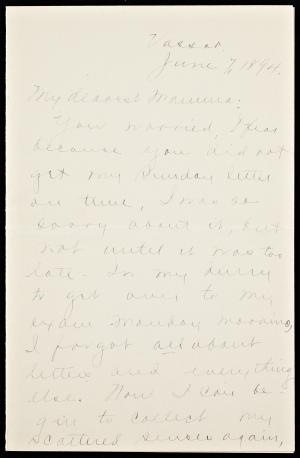 Vassar,
June 7, 1894.
My dearest Mamma:
You worried, I fear
because you did not
get my Sunday letter
on time, I was so
sorry about it, but
not until it was too
late. In my hurry
to get over to my
exam Monday morning,
I forgot all about
letters and everything
else. Now I can be-
gin to collect my
scattered senses again,